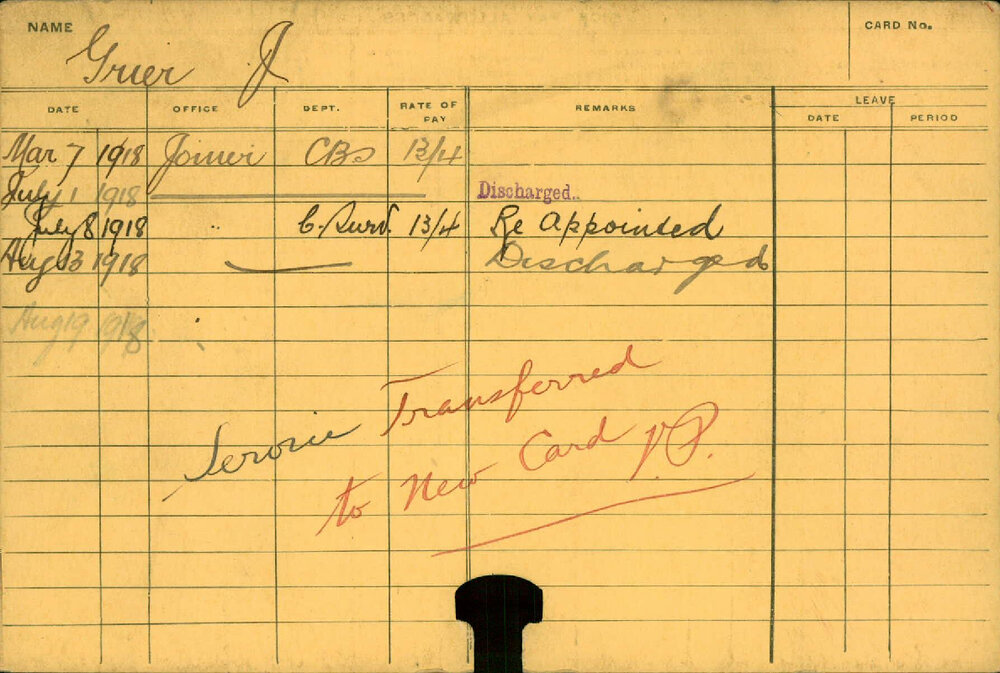 NAME Grier J CARD No.
DATE OFFICE DEPT. RATE OF PAY REMARKS LEAVE
DATE PERIOD
Mar 7 1918 Joiner CBs 13/4
July 1 1918 Discharged.
July 8 1918 " C. Surv. 13/4 Re Appointed
Aug 13 1918 Discharged
Aug 19 1918
Service Transferred
to New Card